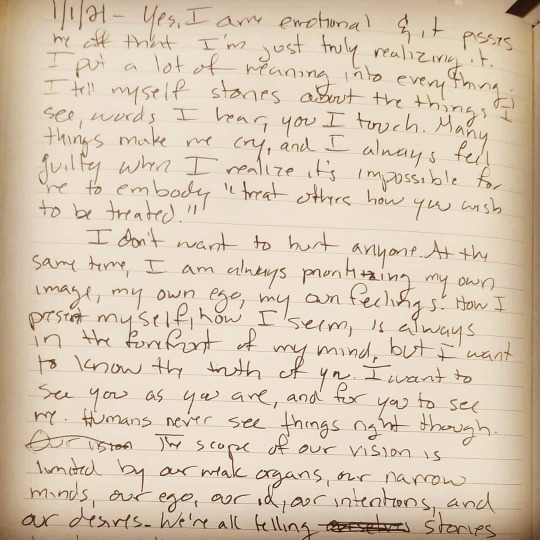 1/1/21 - Yes, I am emotional & it pisses
me off that I'm just truly realizing it.
I put a lot of meaning into everything.
I tell myself stories about the things I
see, words I hear, you I touch. Many
things make me cry, and I always feel
guilty when I realize it's impossible for
me to embody "treat others how you wish
to be treated."
I don't want to hurt anyone. At the
same time, I am always prioritizing my own
image, my own ego, my own feelings. How I
present myself, how I seem, is always
in the forefront of my mind, but I want
to know the truth of you. I want to
see you as you are, and for you to see
me. Humans never see things right though.
Our vision The scope of our vision is
limited by our weak organs, our narrow
minds, our ego, our id, our intentions, and
our desires. We're all telling ourselves stories